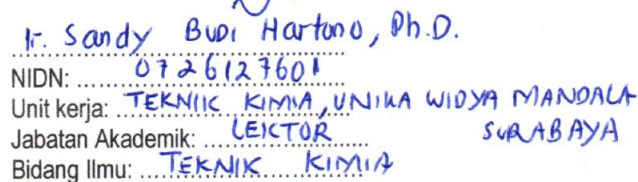 Ir. Sandy Budi Hartono, Ph.D.
NIDN: 0726127601
Unit kerja: TEKNIIK KIMIA, UNIKA WIDYA MANDALA
SURABAYA
Jabatan Akademik: LEKTOR
Bidang Ilmu: TEKNIK KIMIA